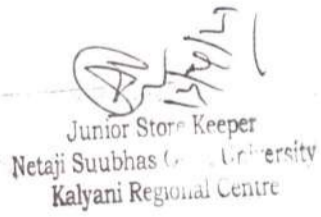 Junior Store Keeper
Netaji Suubhas University
Kalyani Regional Centre